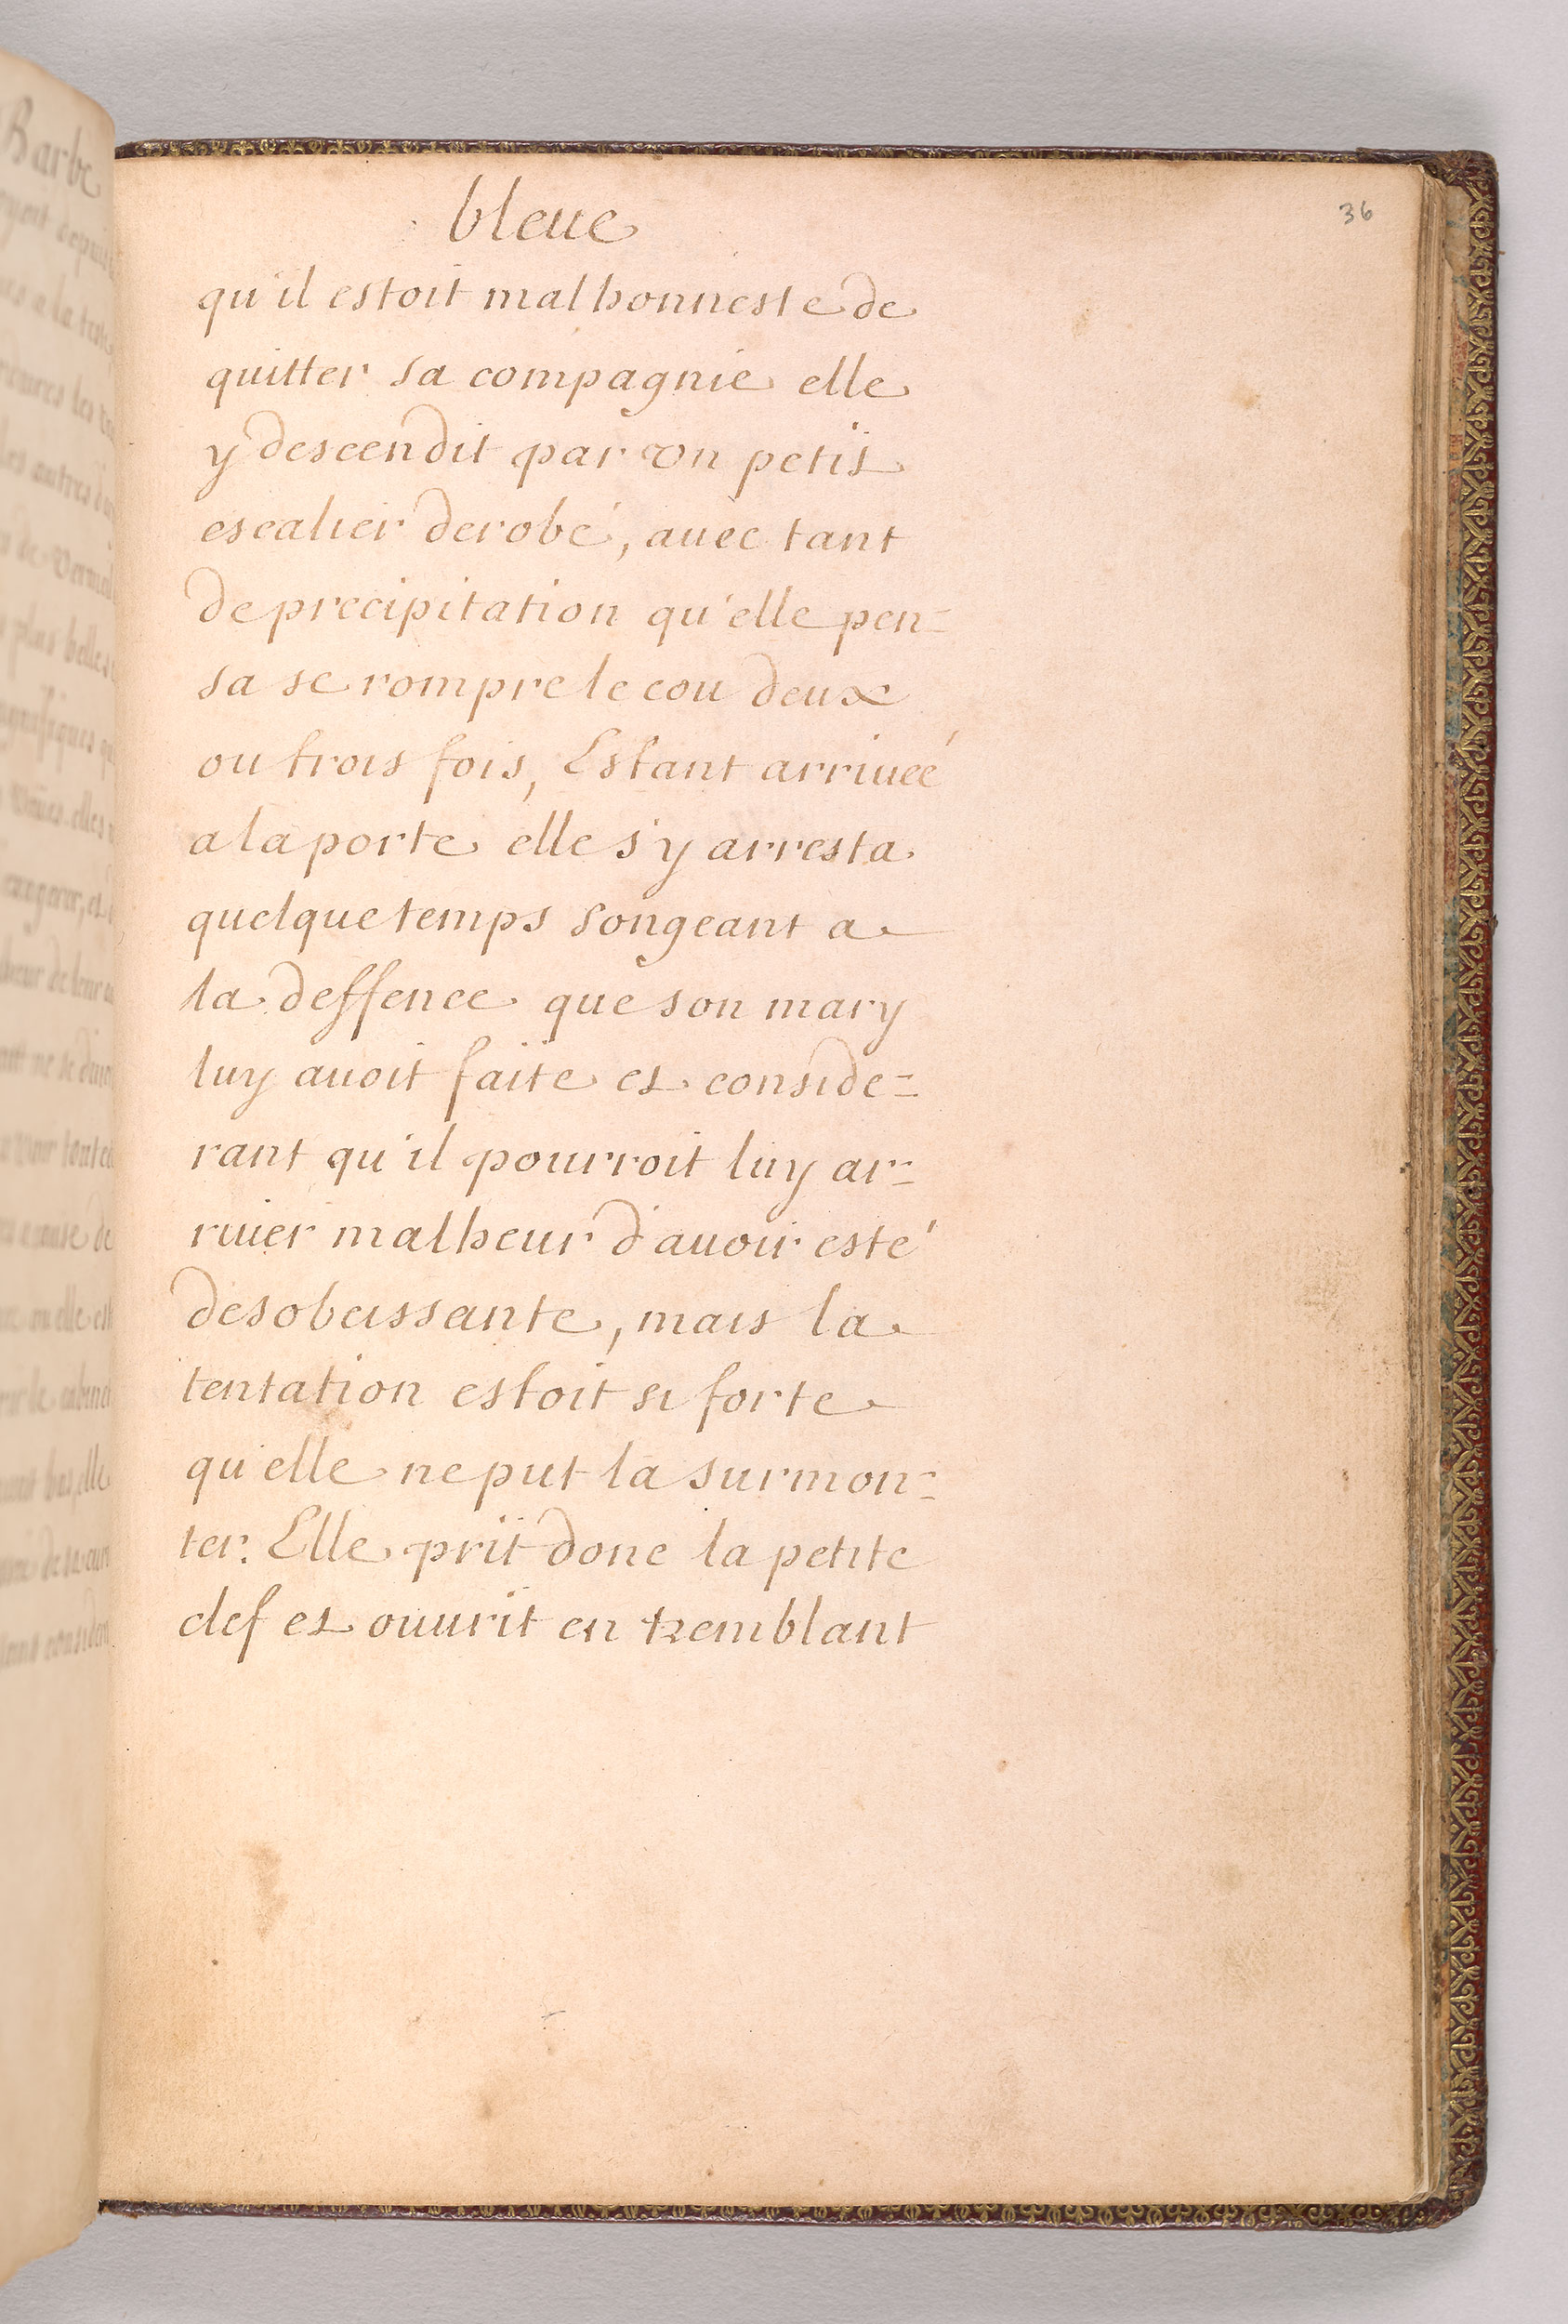 Barbe
bleue
36
qu'il estoit malhonneste de
quitter sa compagnie elle
y descendit par vn petit
escalier derobé, auec tant
de precipitation qu'elle pen=
sa se rompre le cou deux
ou trois fois, Estant arriueé
a la porte elle s'y arresta
quelque temps songeant a
la deffence que son mary
luy auoit faite et conside=
rant qu'il pourroit luy ar=
riuer malheur d'auoir esté
desobeissante, mais la
tentation estoit si forte
qu'elle ne put la surmon=
ter. Elle prit donc la petite
clef et ouurit en tremblant